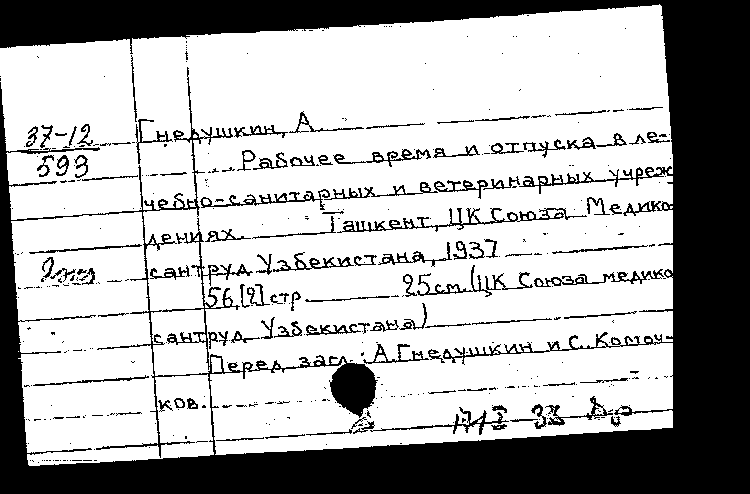 37-12
593
Гнедушкин, А
... Рабочее время и отпуска в ле-
чебно-санитарных и ветеринарных учреж
дениях. Ташкент, ЦК Союза Медико-
сантруд Узбекистана, 1937
56,[2] стр. 25см. (ЦК Союза медико
сантруд Узбекистана)
Перед загл.: А.Гнедушкин и С. Колточ-
ков.